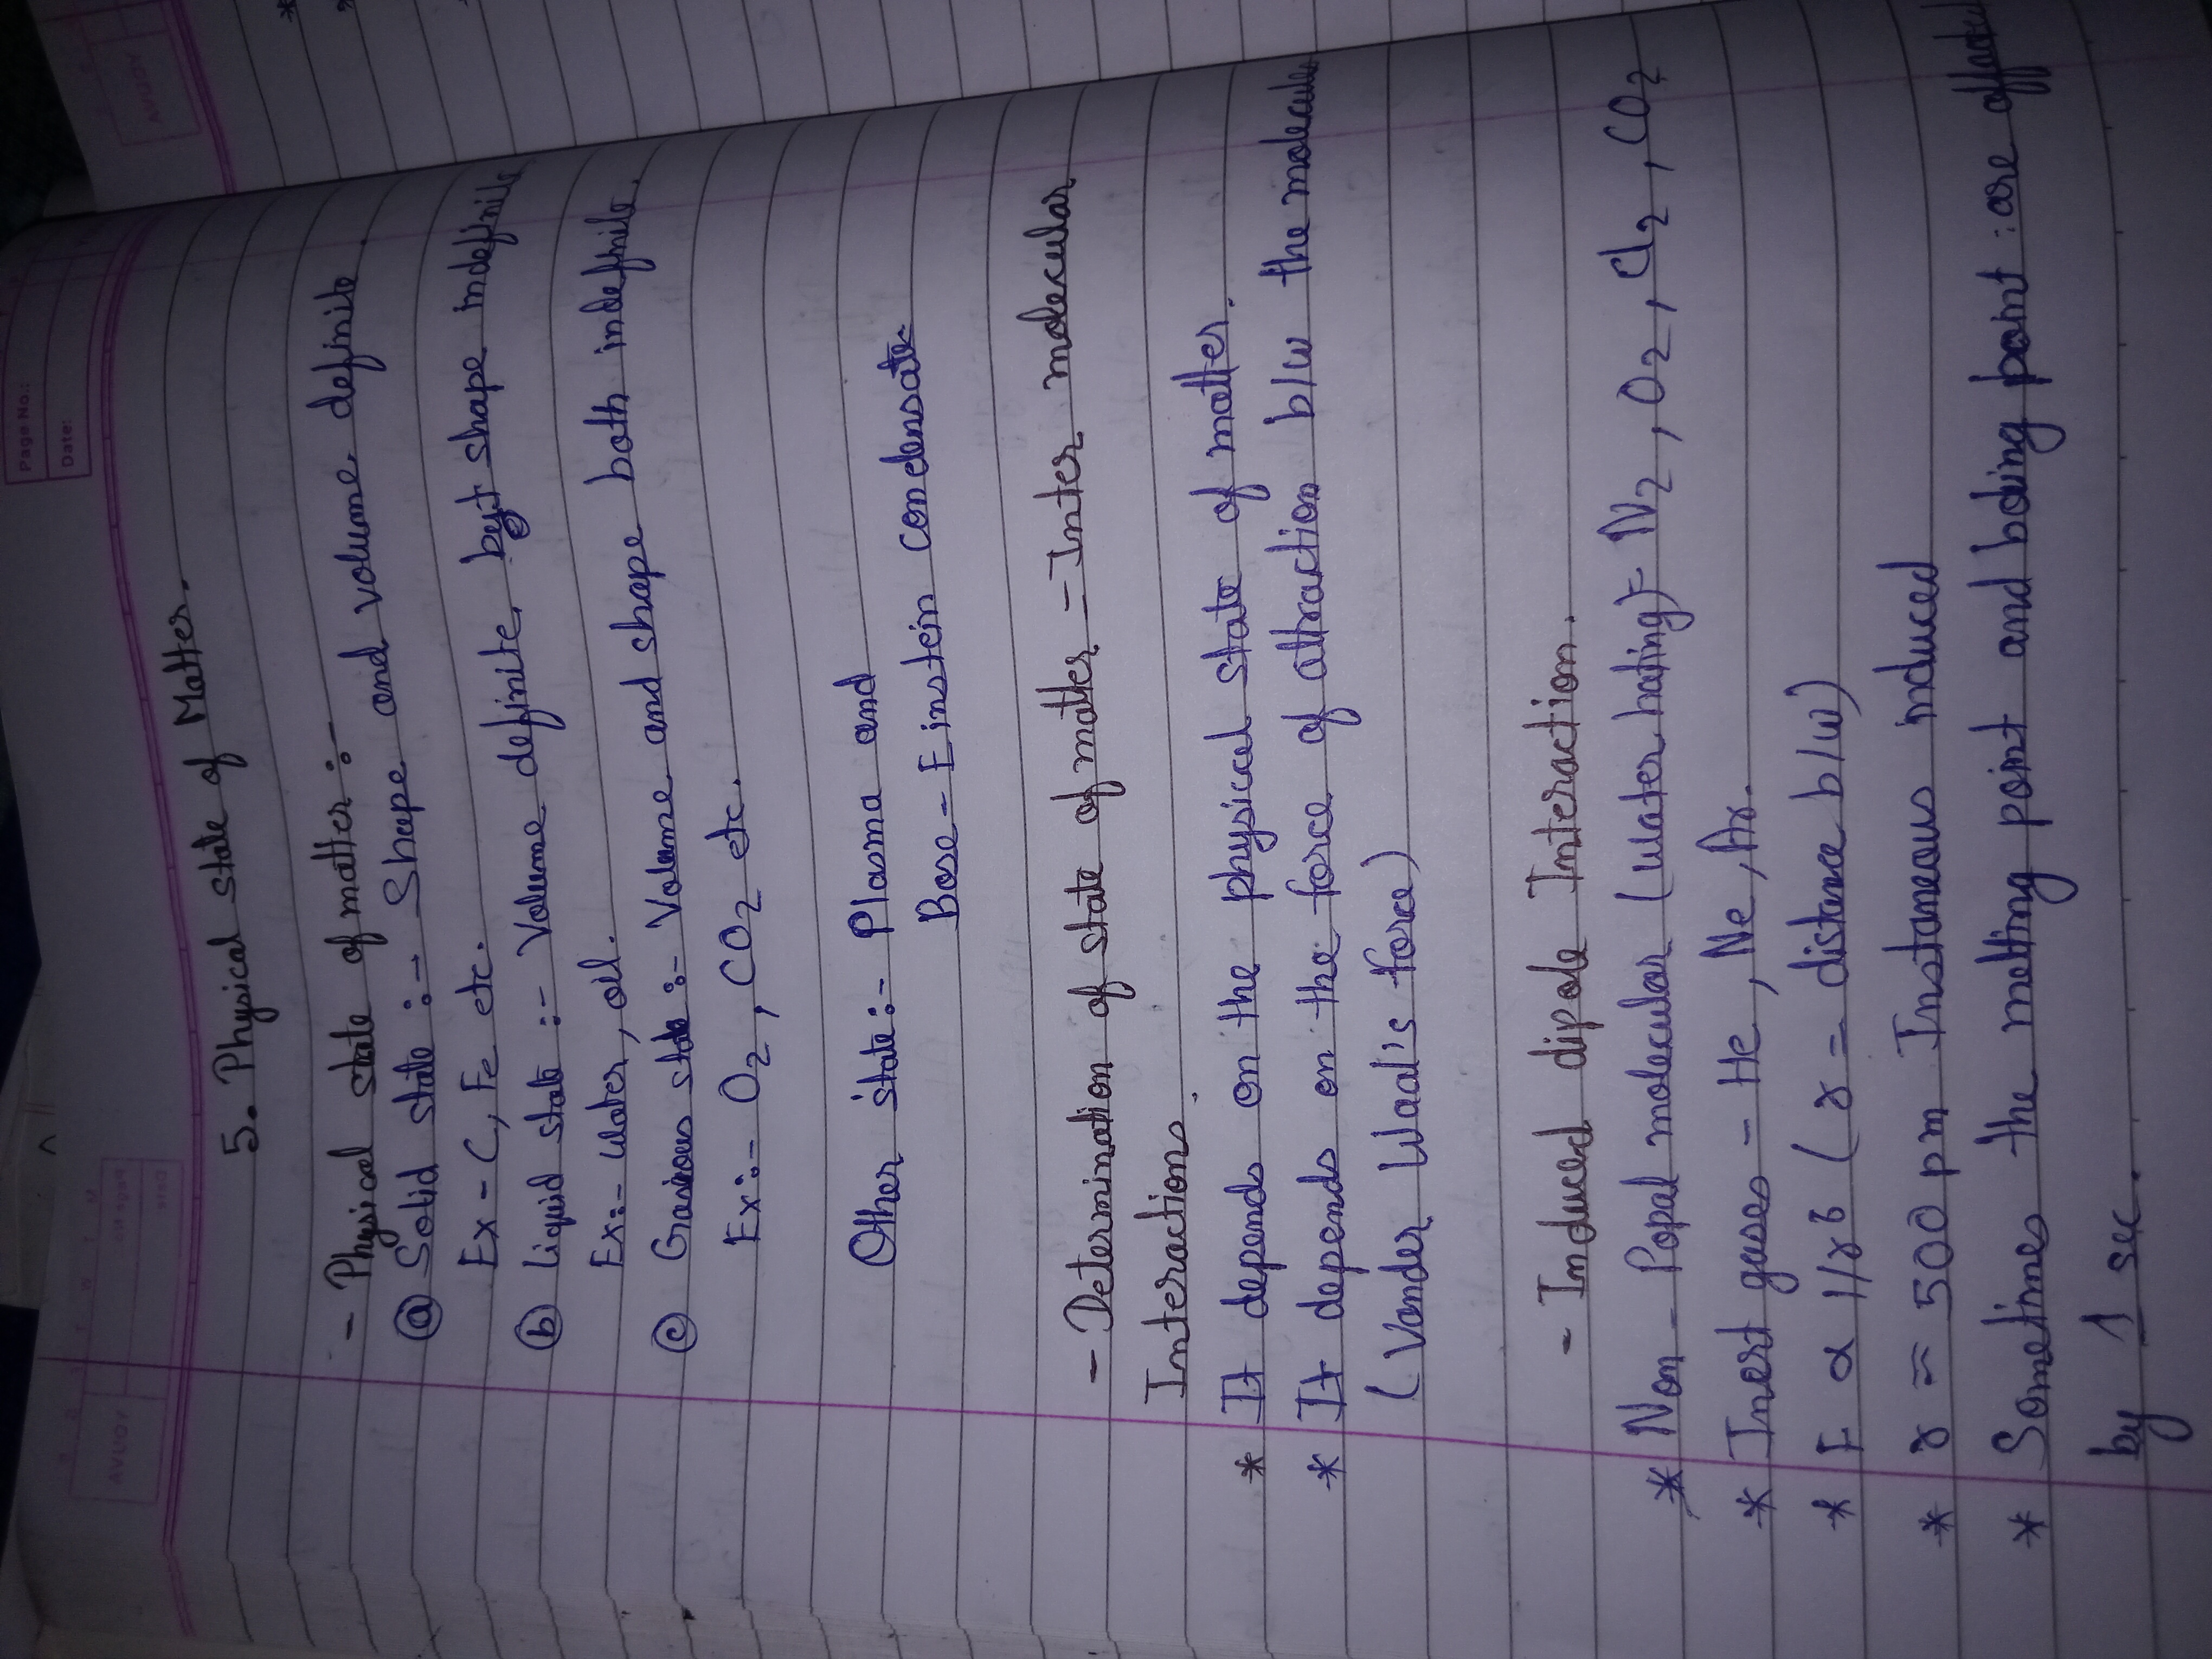 Page No.:
Date:
5. Physical state of Matter.
- Physical state of matter :-
(a) Solid state :- Shape and volume definite
Ex - C, Fe etc.
(b) Liquid state :- Volume definite, but shape indefinite
Ex:- Water, oil.
(c) state :- Volume and shape both indefinite.
Ex:- O2, CO2 etc.
Other state:- Plasma and
Bose - Einstein condensate
- Determination of state of matter - Inter molecular
Interactions.
* It depends on the physical state of matter.
* It depends on the force of attraction b/w the molecule
(Vander Waal's force)
- Induced dipole Interaction.
* Non - Popal molecular (Water hating)- N2, O2, Cl2, CO2
* Inert gases - He, Ne, Ar.
* F α 1/r6 (r = distance b/w)
* r ≈ 500 pm Instaneous induced
* Sometimes the melting point and boling point : are
by 1 sec.
AVIJOY
AVIJOY